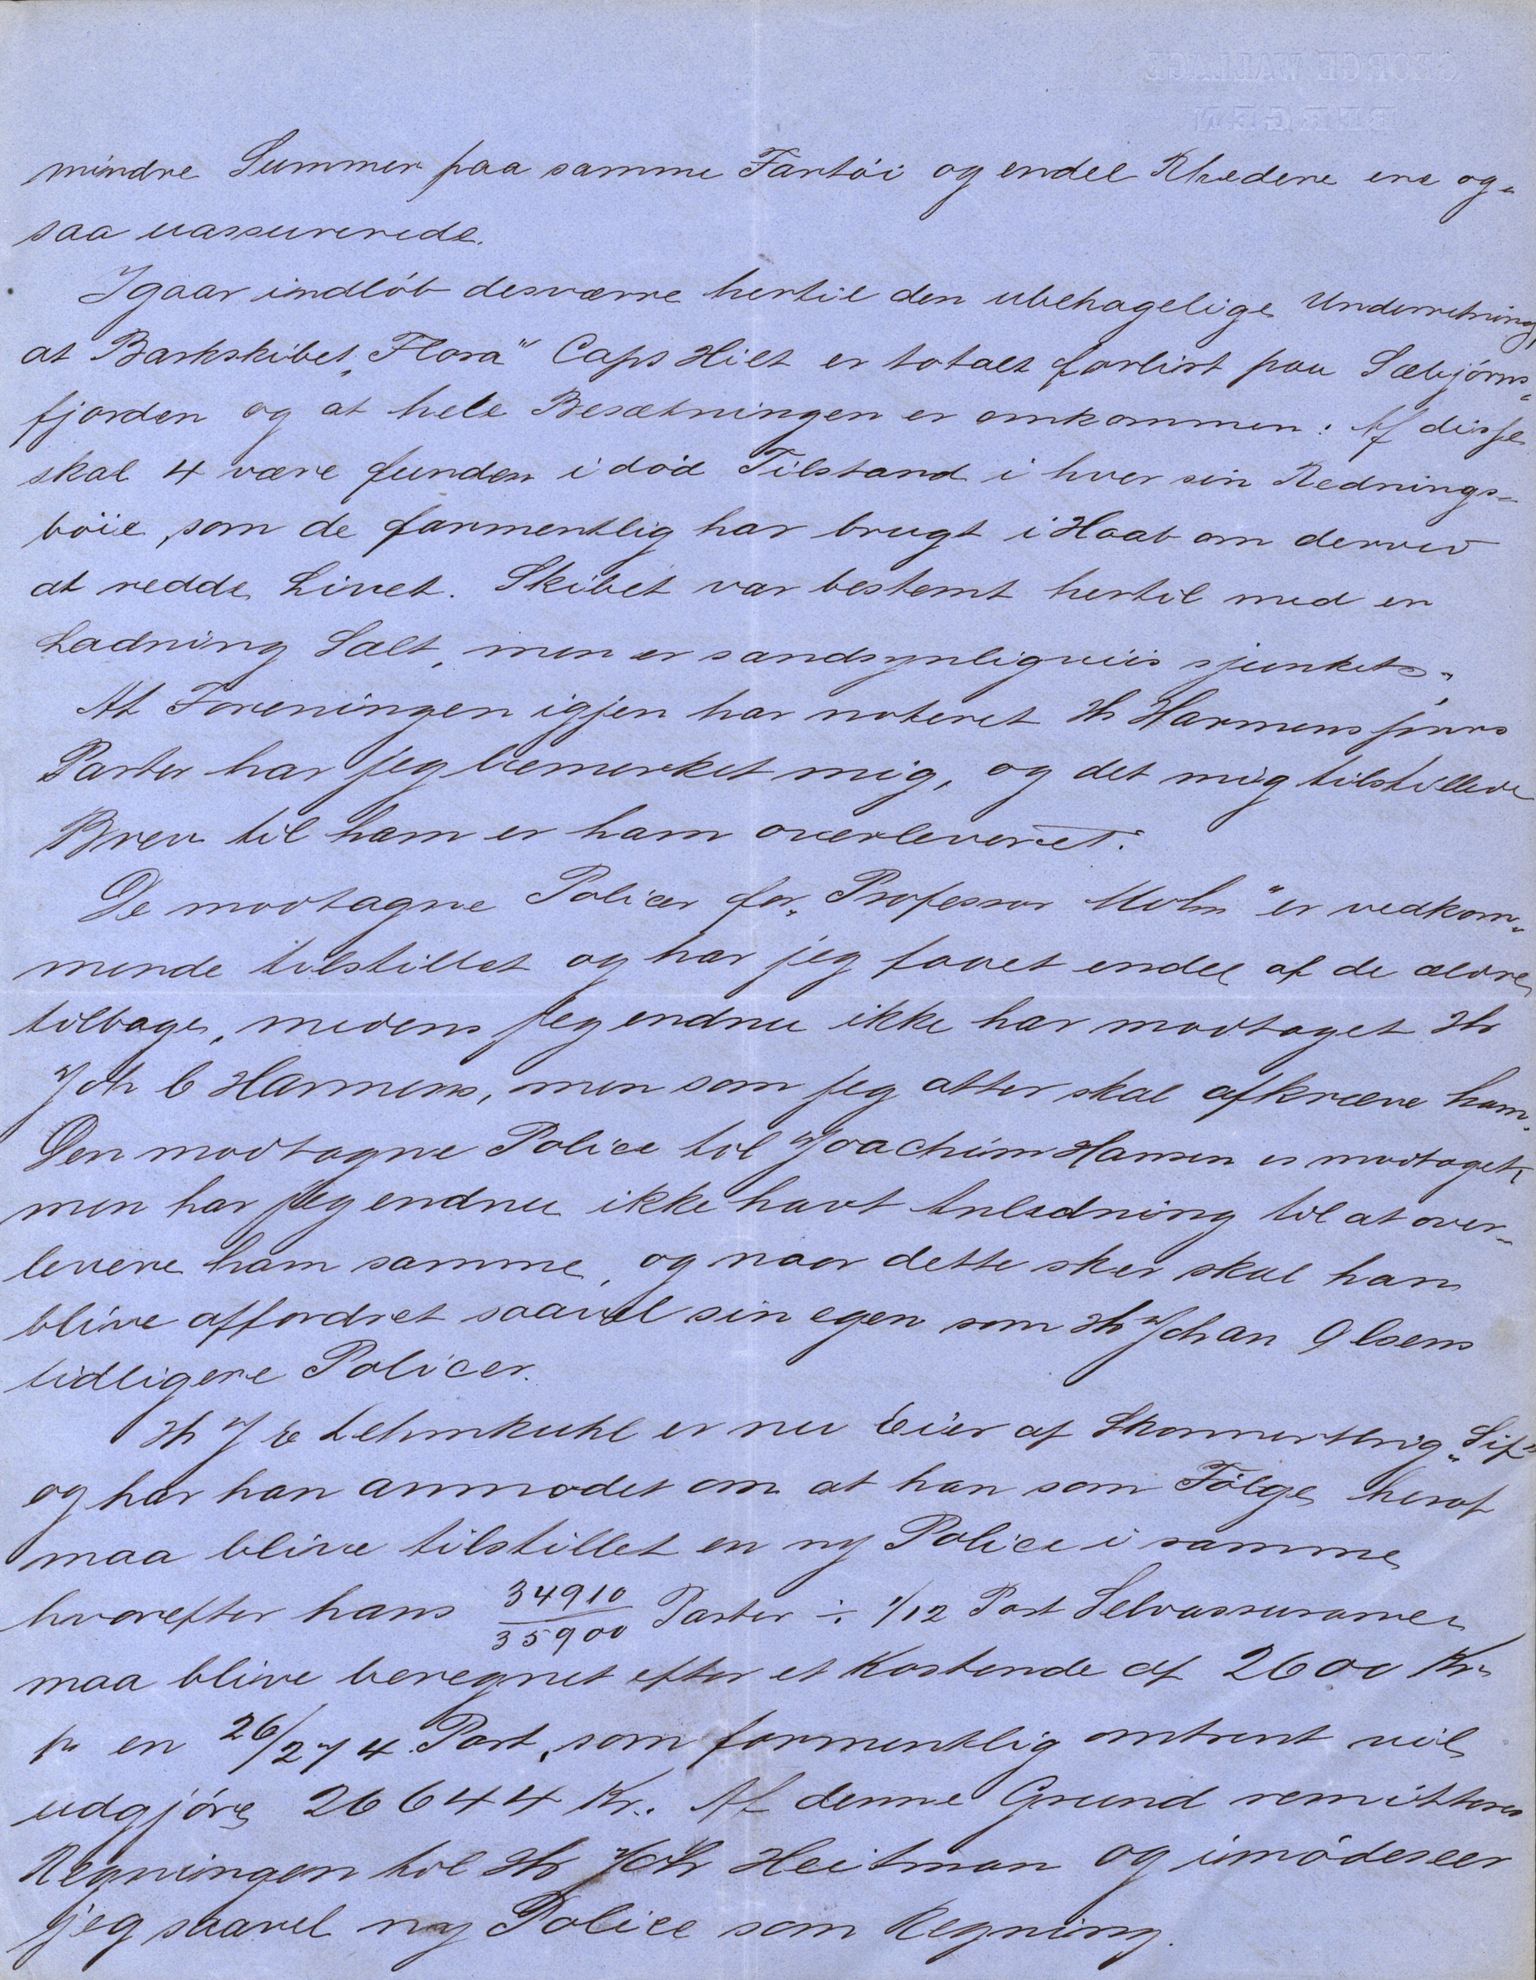 mindre Summer paa samme Fartöi og endel Rhedere ere og-
saa uassurerede.
Igaar indlöb desværre hertil den ubehagelige Underretning,
at Barkskibet "Flora" Capt Hilt er totalt forlist paa Sæbjörns-
fjorden og at hele Besætningen er omkommen. Af disse
skal 4 være funden i död Tilstand i hver sin Rednings-
böie, som de formentlig har brugt i Haab om derved
at redde Livet. Skibet var bestemt hertil med en
Ladning Salt, men er sandsynligviis sjunket.
At Foreningen igjen har noteret Hr Harmens jrs
Parter har jeg bemerket mig, og det mig tilstillede
Brev til ham er ham overleveret.
De modtagne Policer for "Professor Mohn" er vedkom-
mende tilstillet og har jeg faaet endel af de ældre
tilbage, medens jeg endnu ikke har modtaget Hr
Joh C Harmens, men som jeg atter skal afkræve ham.
Den modtagne Police til Joachim Hansen er modtaget,
men har jeg endnu ikke havt Anledning til at over-
levere ham samme, og naar dette sker skal han
blive affordret saavel sin egen som Hr Johan Olsens
tidligere Policer.
Hr J C Lehmkuhl er nu Eier af Skonnertbrig "Sif"
og har han anmodet om at han som Fölge heraf
maa blive tilstillet en ny Police i samme
hvorefter hans 34910/35900 Parter ÷ 1/12 Part Selvassurance
maa blive beregnet efter et Kostende af 2600 Kr
pr en 26/274 Part, som formentlig omtrent vil
udgjöre 26644 Kr. Af denne Grund remitteres
Regningen til Hr Joh Heitman og imödeseer
jeg saavel ny Police som Regning.
GEORGE WALLACE
BERGEN